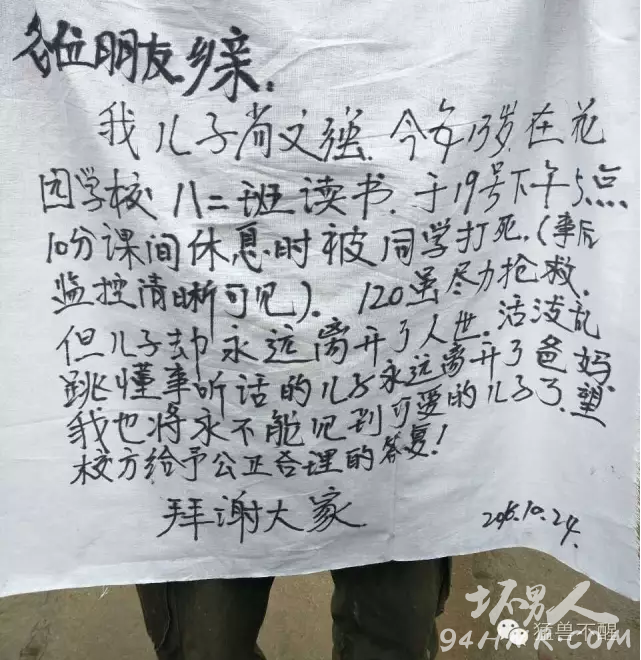 各位朋友乡亲:
我儿子尚文强.今年13岁.在花
园学校八二班读书.于19号下午5点
10分课间休息时被同学打死.(事后
监控清晰可见).120虽尽力抢救.
但儿子却永远离开了人世.活泼乱
跳懂事听话的儿子永远离开了爸妈.
我也将永不能见到可爱的儿子了.望
校方给予公正合理的答复!
拜谢大家
2016.10.24.
坏男人
94HNR.COM
猛兽不醒